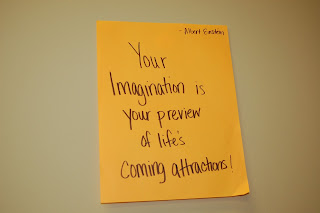 - Albert Einstein
Your
Imagination is
your preview
of life's
coming attractions!